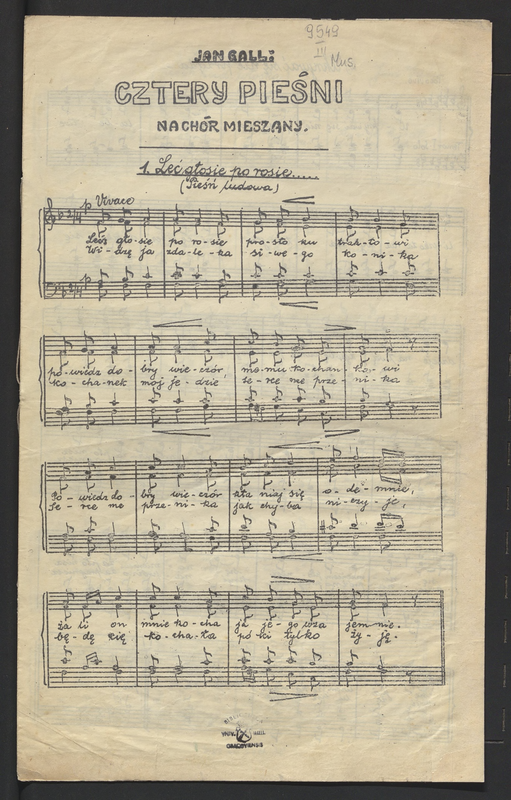 9549
III
Mus.
JAN GALL:
CZTERY PIEŚNI
NA CHÓR MIESZANY.
1. Leć głosie po rosie.....
(Pieśń ludowa)
p Vivace
Leć gło-sie po ro-sie pro-sto ku
Wi-dzę ja zda-le-ka si-we-go ko-ni-ka
p
po-wiedz do-bry wie-czór, mo-mu ko-chan-ko-wi
ko-cha-nek mój je-dzie se-rce me prze-ni-ka
Po-wiedz do-bry wie-czór kła niaj się o-de-mnie,
Se-rce me prze-ni-ka jak chy-ba ni-czy-je,
ża li on mnie ko-cha ja je-go wza jem-nie.
bę-dę cię ko-cha-ła pó-ki tylko ży-ję.